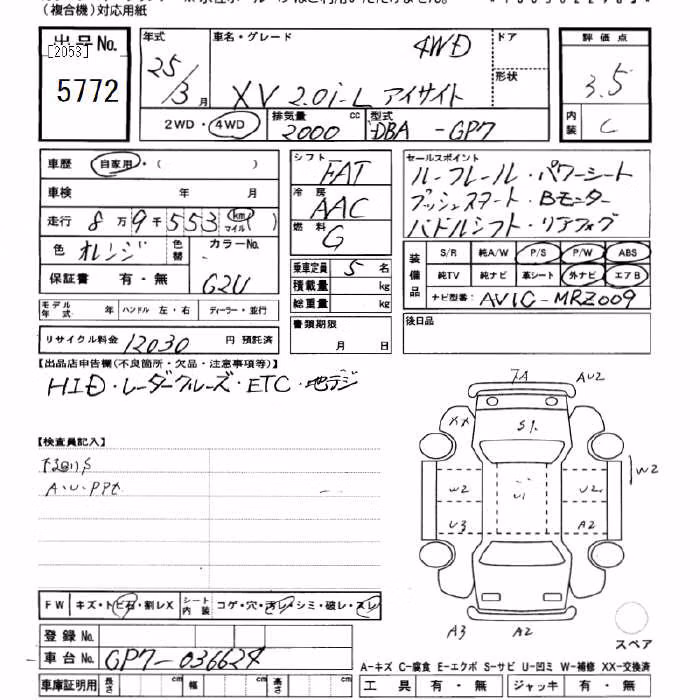 (複合機)対応用紙
出品No.
[2053]
5772
年式
25/3月
車名・グレード
4WD
XV 2.0i-L アイサイト
ドア
形状
評価点
3.5
内装
C
2WD・4WD
排気量
2000
cc
型式
DBA-GP7
車歴
自家用・( )
車検
年 月
走行
8万9千553
km
マイル
( )
色
オレンジ
色替
カラーNo.
G2U
保証書
有・無
モデル年式
年
ハンドル 左・右
ディーラー・並行
リサイクル料金
12030
円 預託済
シフト
FAT
冷房
AAC
燃料
G
乗車定員
5名
積載量
kg
総重量
kg
書類期限
月 日
セールスポイント
ルーフレール・パワーシート
プッシュスタート・Bモニター
パドルシフト・リアフォグ
装備品
S/R 純A/W P/S P/W ABS
純TV 純ナビ 革シート 外ナビ エアB
ナビ型番:
AVIC-MRZ009
後日品
【出品店申告欄(不良箇所・欠品・注意事項等)】
HID・レーダークルーズ・ETC・地デジ
【検査員記入】
下回りS
A・U・PPt
FW
キズ・トビ石・割レX
シート内装
コゲ・穴・汚レ・シミ・破レ・スレ
登録No.
車台No.
GP7-036624
車庫証明用
長さ
cm
幅
cm
高さ
cm
AU2
XX
S1
W2
W2
U1
U2
U3
A2
A3
A2
スペア
A-キズ C-腐食 E-エクボ S-サビ U-凹ミ W-補修 XX-交換済
工具
有・無
ジャッキ
有・無